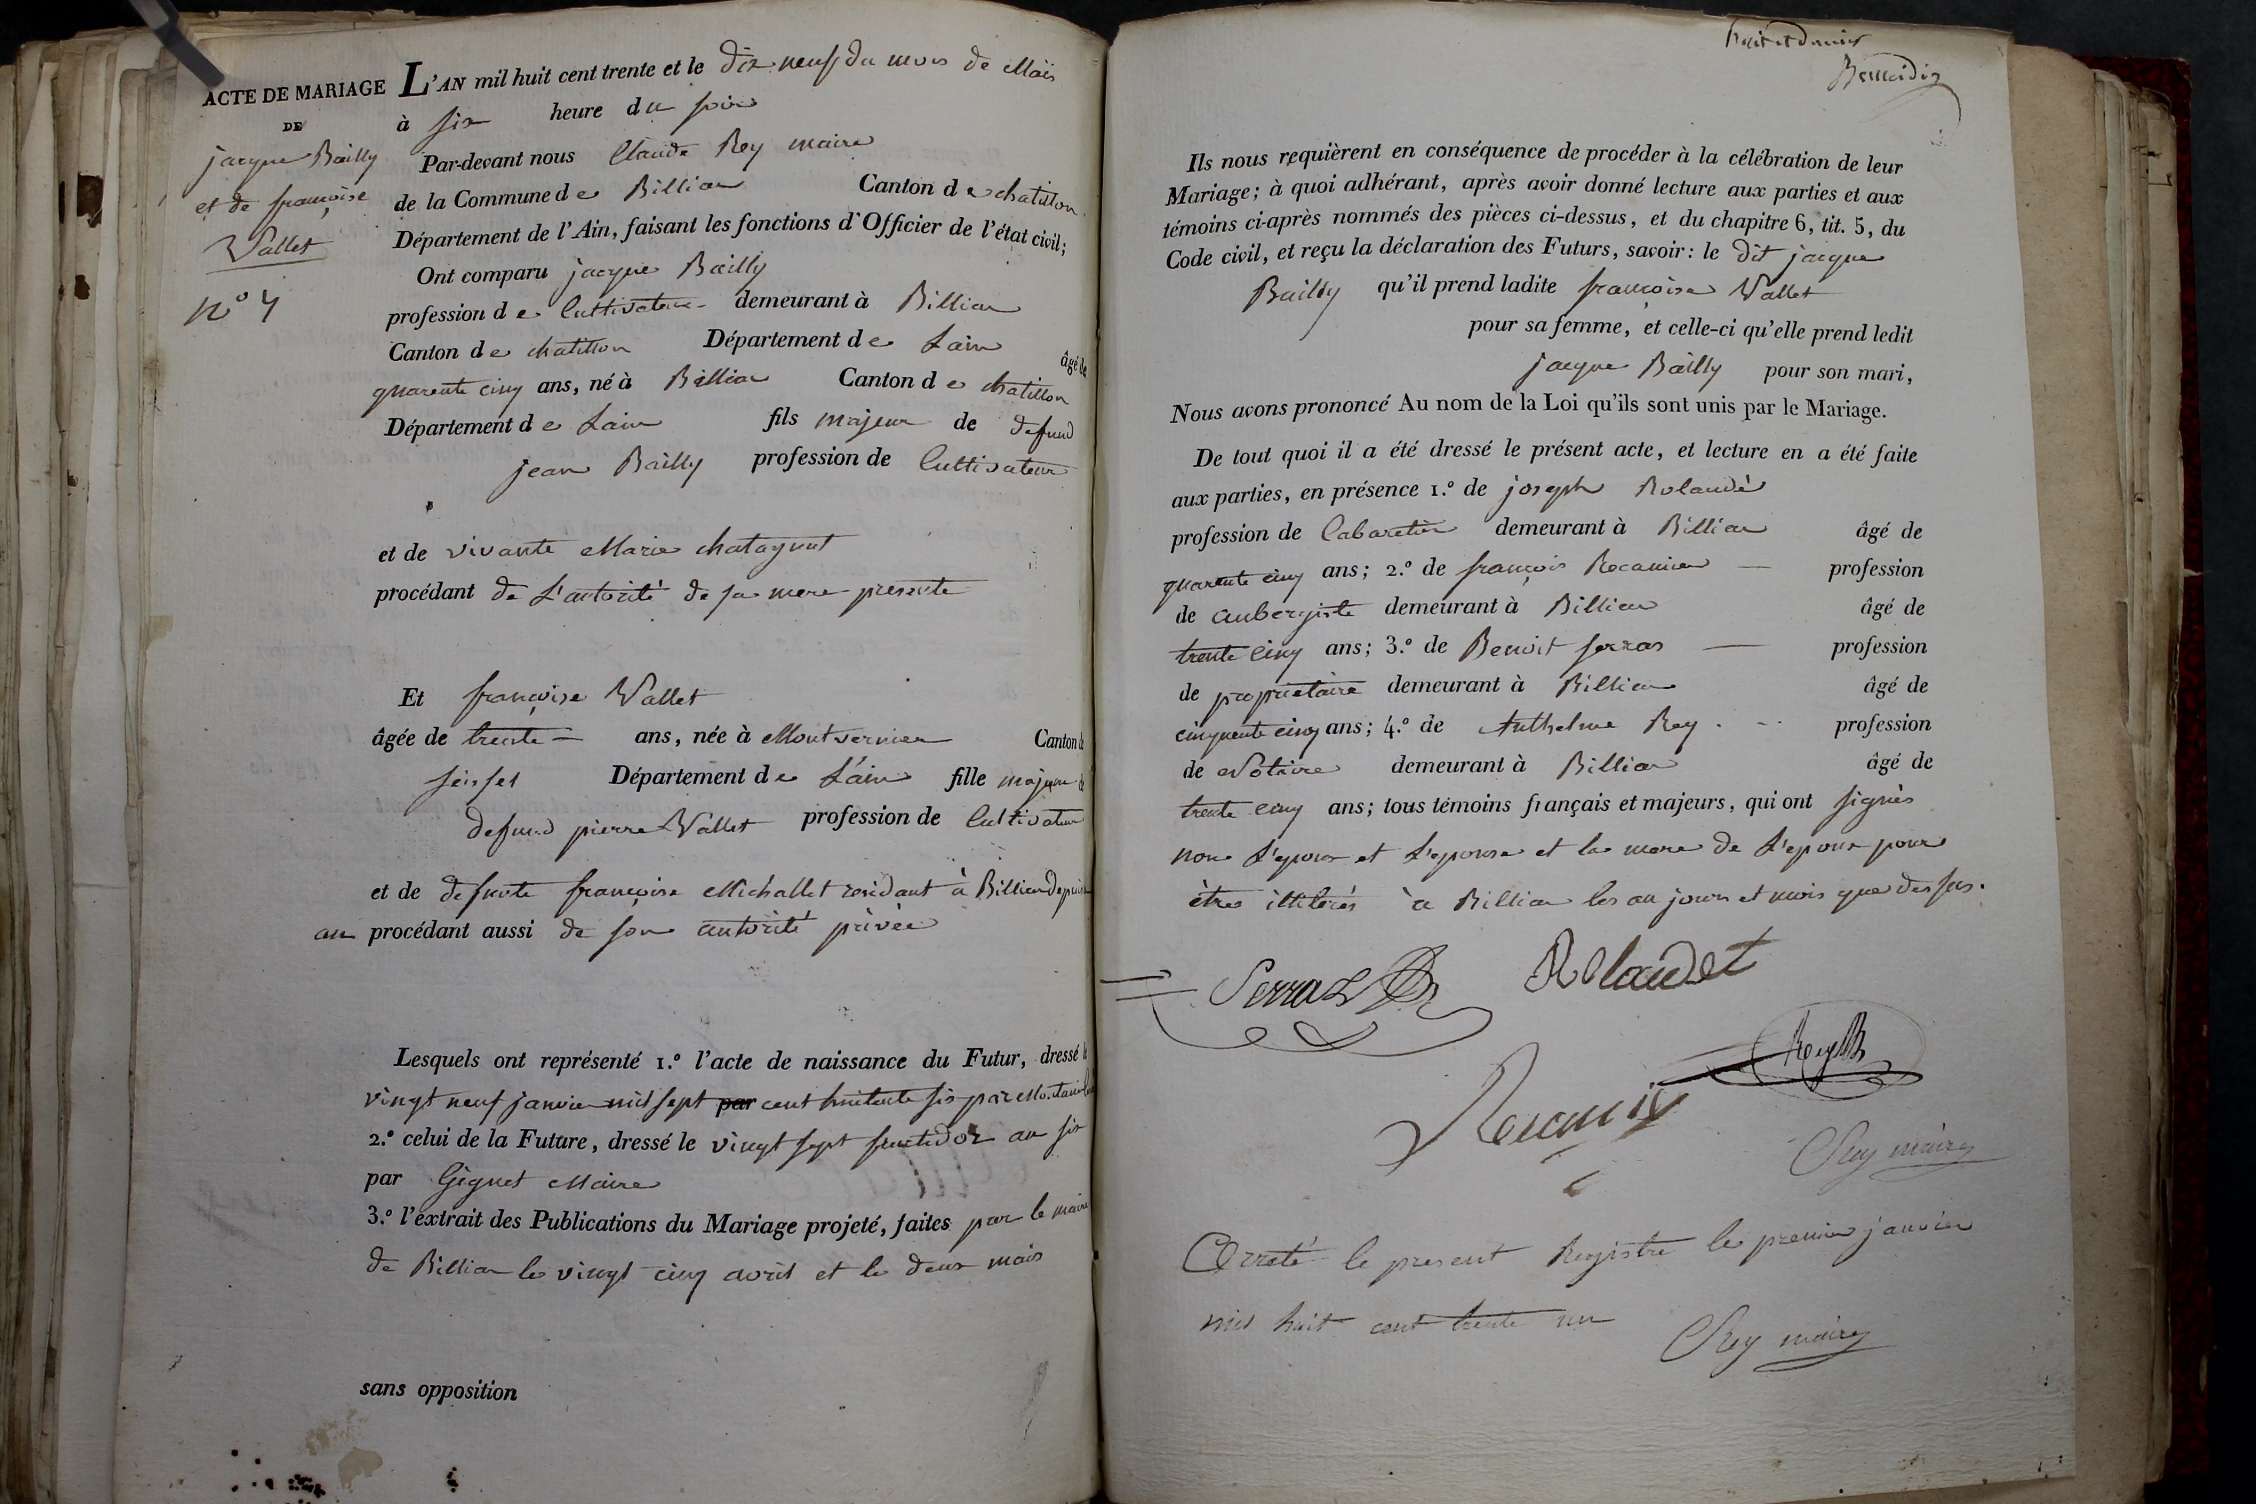 ACTE DE MARIAGE
DE
jacque Bailly
et de françoise
Vallet
n° 4
L'AN mil huit cent trente et le dix neuf du mois de Mais
à six heure du soir
Par-devant nous Claude Rey maire
de la Commune de Billiat Canton de chatillon
Département de l'Ain, faisant les fonctions d'Officier de l'état civil;
Ont comparu jacque Bailly
profession de Cultivateur demeurant à Billiat
Canton de chatillon Département de Lain âgé de
quarente cinq ans, né à Billia Canton de chatillon
Département de Lain fils majeur de defund
jean Bailly profession de Cultivateur
et de vivante Marie chatagnat
procédant de L'autorité de sa mere presente
Et françoise Vallet
âgée de trente ans, née à Montvernier Canton de
seissel Département de L'ain fille majeure de
defund pierre Vallet profession de Cultivateur
et de defunte françoise Michallet residant à Billia depuis un
an procédant aussi de son autorité privée
Lesquels ont représenté 1.° l'acte de naissance du Futur, dressé le
vingt neuf janvier mil sept par cent huitente six par
2.° celui de la Future, dressé le vingt sept fructidor an six
par Gignet Maire
3.° l'extrait des Publications du Mariage projeté, faites par le maire
de Billia le vingt cinq avril et le deux mais
sans opposition
huit et dernier
Ils nous requièrent en conséquence de procéder à la célébration de leur
Mariage; à quoi adhérant, après avoir donné lecture aux parties et aux
témoins ci-après nommés des pièces ci-dessus, et du chapitre 6, tit. 5, du
Code civil, et reçu la déclaration des Futurs, savoir: le dit jacque
Bailly qu'il prend ladite françoise Vallet
pour sa femme, et celle-ci qu'elle prend ledit
jacque Bailly pour son mari,
Nous avons prononcé Au nom de la Loi qu'ils sont unis par le Mariage.
De tout quoi il a été dressé le présent acte, et lecture en a été faite
aux parties, en présence 1.° de joseph Rolandè
profession de Cabaretier demeurant à Billia âgé de
quarente cinq ans; 2.° de françois Recamier profession
de aubergiste demeurant à Billia âgé de
trente cinq ans; 3.° de Benoit serras profession
de propriétaire demeurant à Billia âgé de
cinquente cinq ans; 4.° de Anthelme Rey profession
de Notaire demeurant à Billia âgé de
trente cinq ans; tous témoins français et majeurs, qui ont signés
non L'epoux et L'epouse et la mere de L'epoux pour
être illiterés à Billia les an jours et mois que dessus.
Serraz
Rolandet
Rey
Rey maire
Arreté le present Registre le premier janvier
mil huit cent trente un
Rey maire